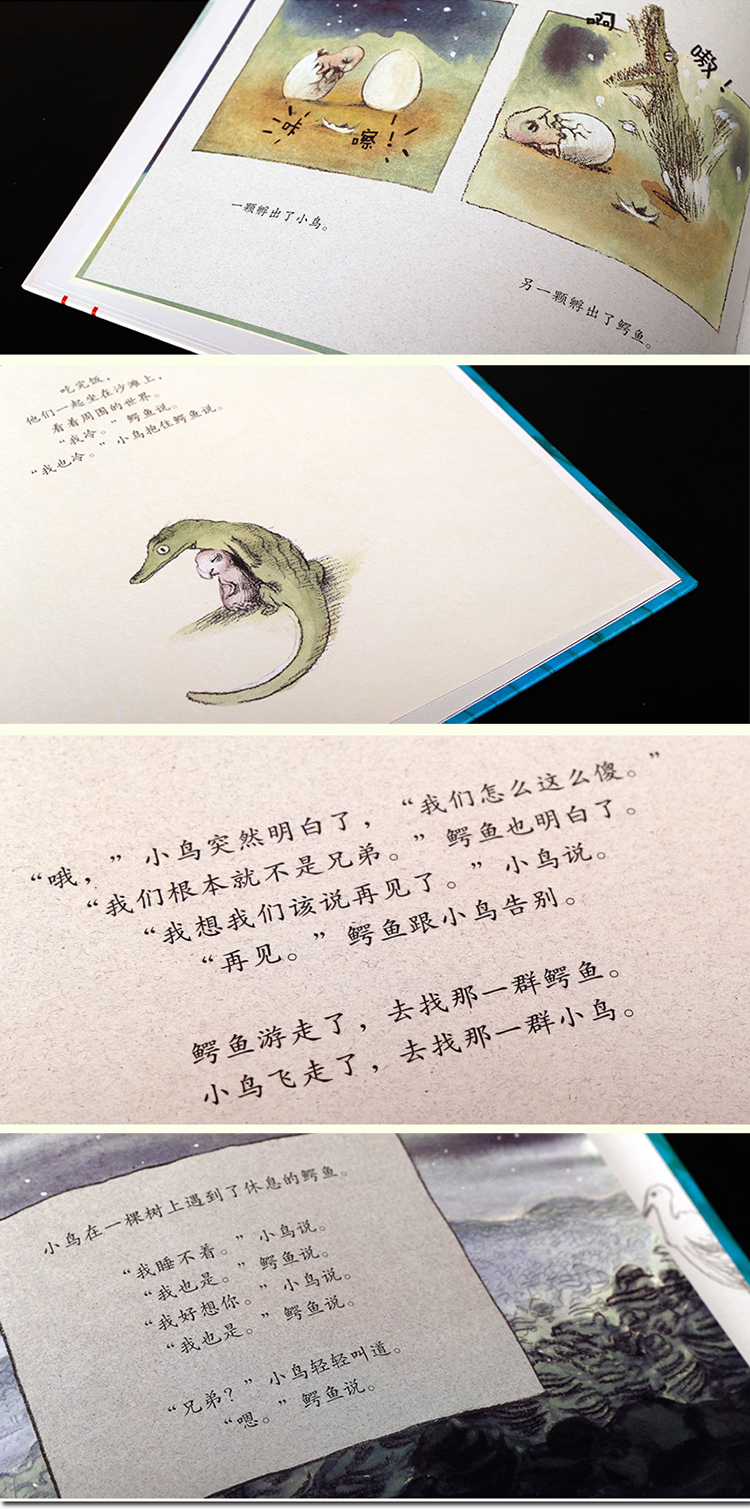 啊
嗷！
咔
嚓！
一颗孵出了小鸟。
另一颗孵出了鳄鱼。
吃完饭，
他们一起坐在沙滩上，
看着周围的世界。
“我冷。”鳄鱼说。
“我也冷。”小鸟抱住鳄鱼说。
“哦，”小鸟突然明白了，“我们怎么这么傻。”
“我们根本就不是兄弟。”鳄鱼也明白了。
“我想我们该说再见了。”小鸟说。
“再见。”鳄鱼跟小鸟告别。
鳄鱼游走了，去找那一群鳄鱼。
小鸟飞走了，去找那一群小鸟。
小鸟在一棵树上遇到了休息的鳄鱼。
“我睡不着。”小鸟说。
“我也是。”鳄鱼说。
“我好想你。”小鸟说。
“我也是。”鳄鱼说。
“兄弟？”小鸟轻轻叫道。
“嗯。”鳄鱼说。